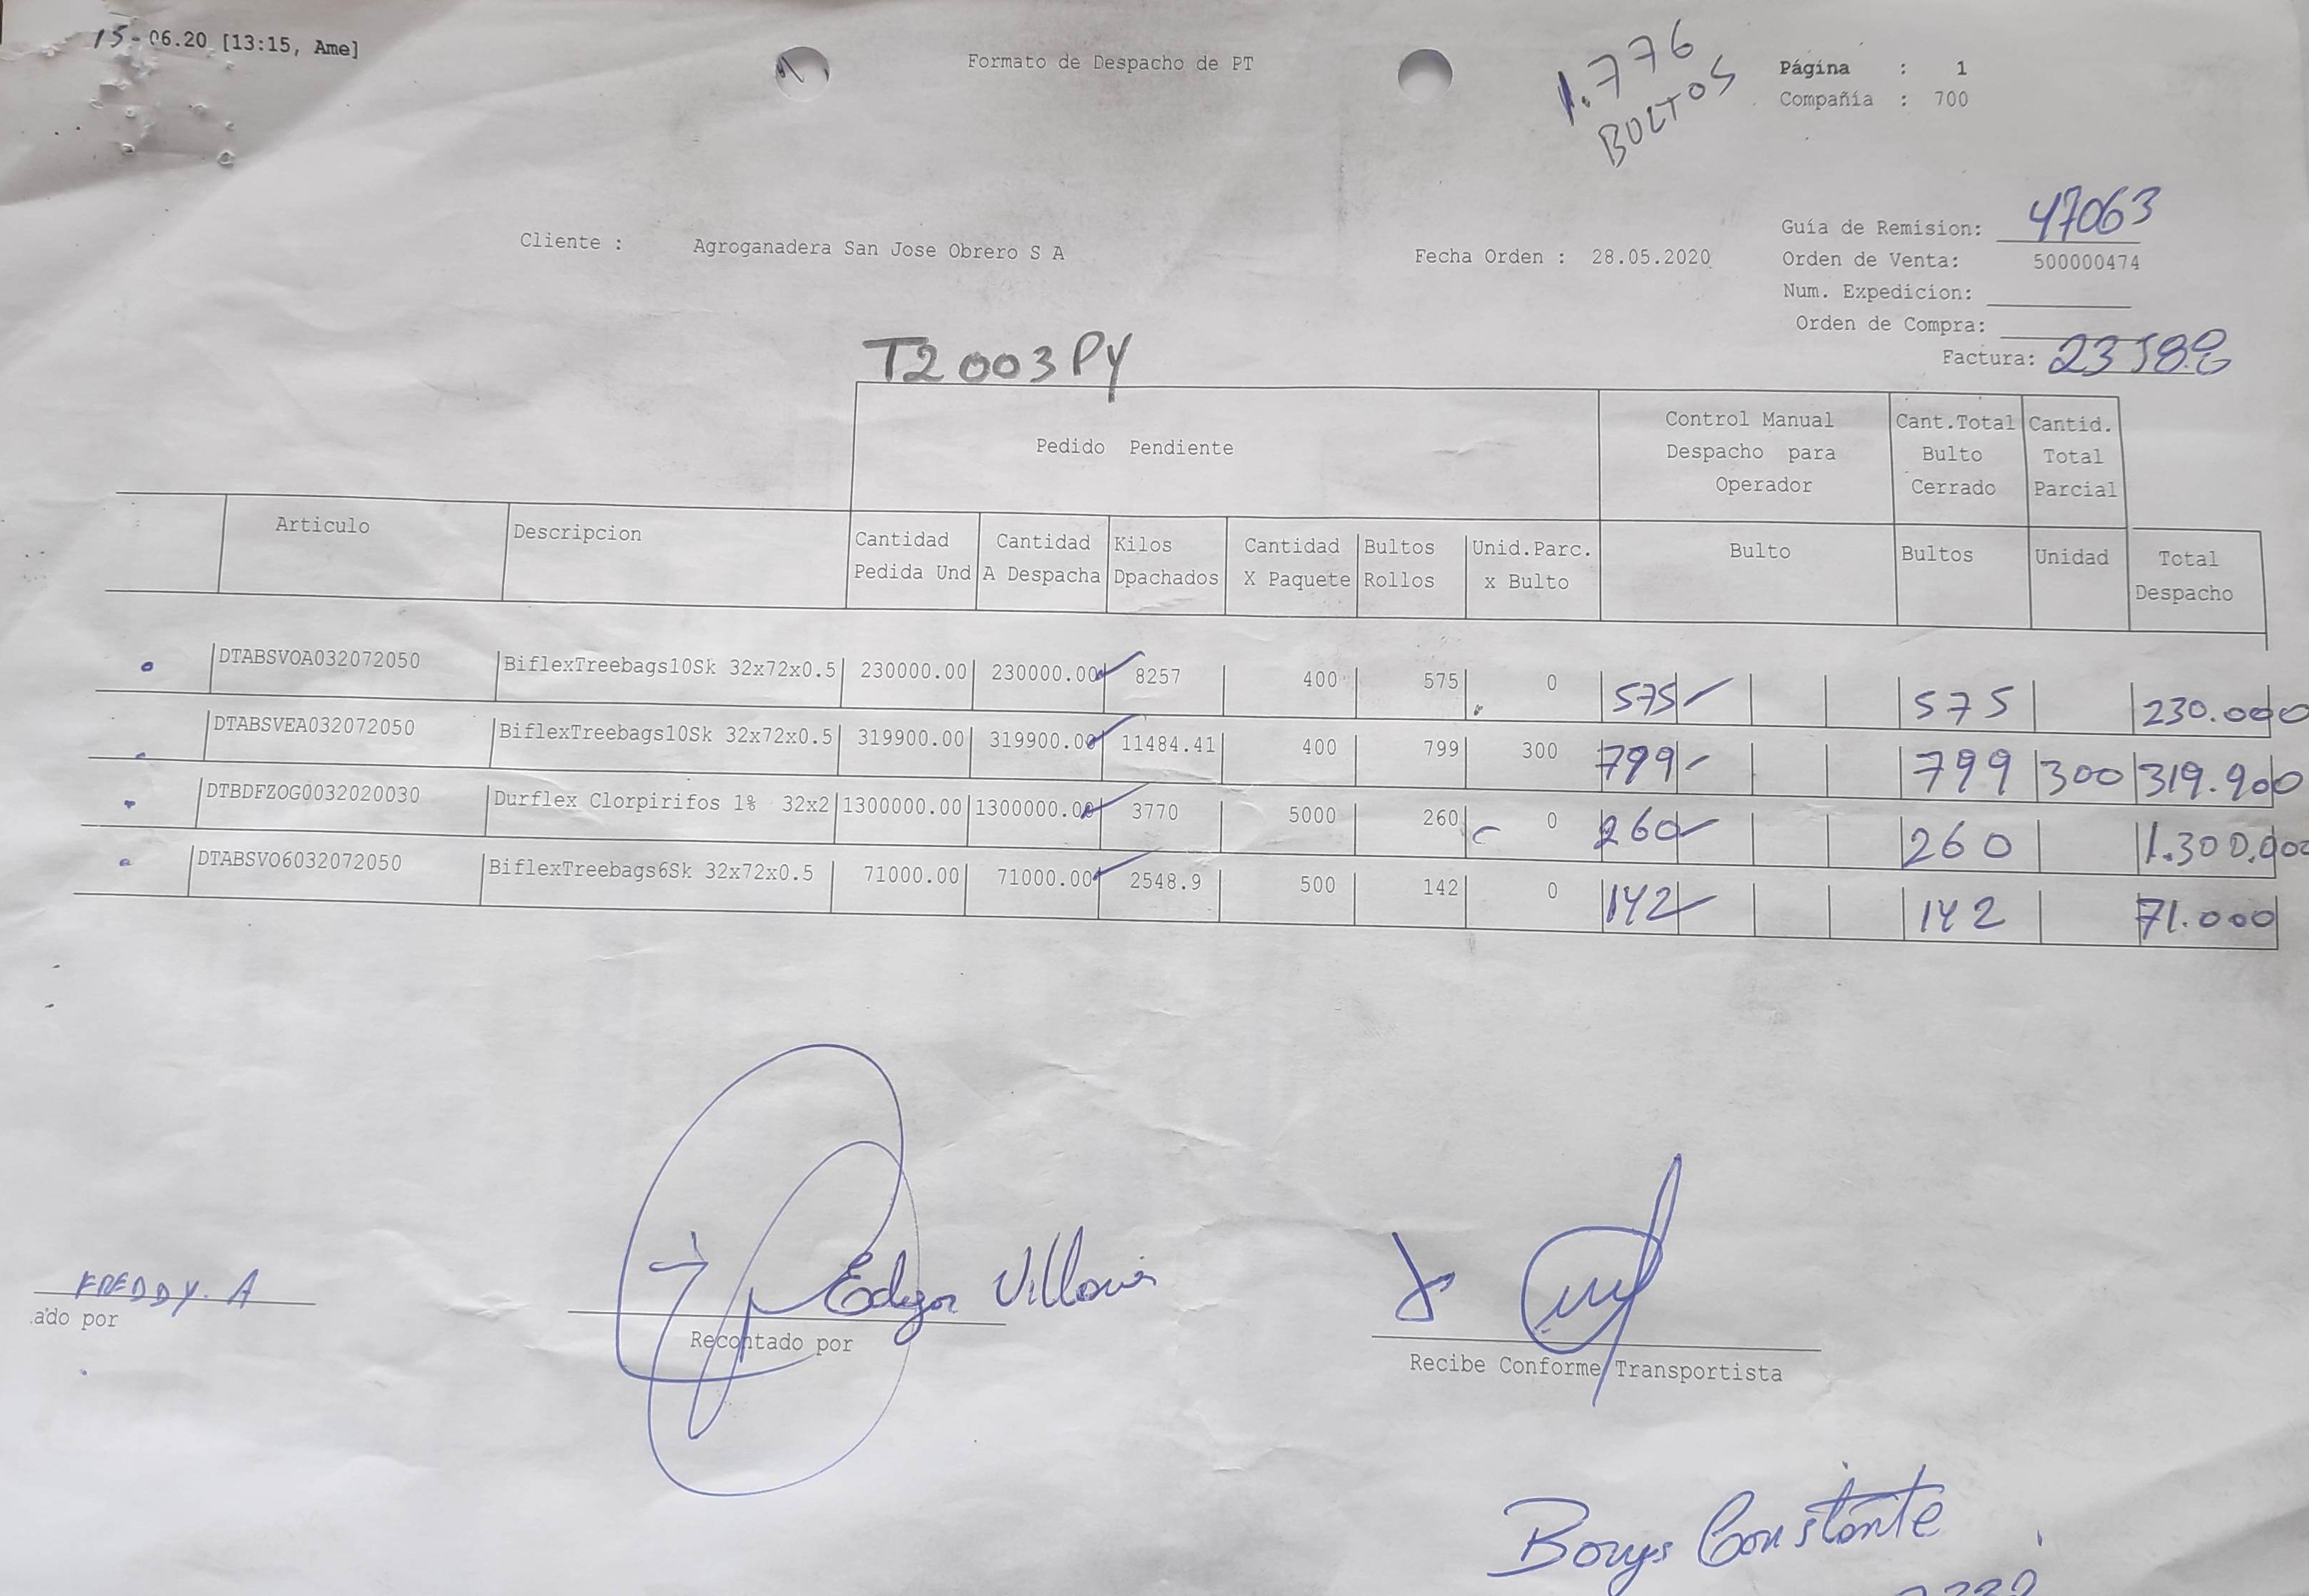 15-06.20 [13:15, Ame]
Formato de Despacho de PT
1.776
BULTOS
Página : 1
Compañía : 700
Cliente : Agroganadera San Jose Obrero S A
Fecha Orden : 28.05.2020
Guía de Remision: 47063
Orden de Venta: 500000474
Num. Expedicion:
Orden de Compra:
Factura:
T2003PY
Pedido Pendiente
Control Manual Despacho para Operador
Cant.Total Bulto Cerrado
Cantid. Total Parcial
Articulo Descripcion Cantidad Pedida Und Cantidad A Despacha Kilos Dpachados Cantidad X Paquete Bultos Rollos Unid.Parc. x Bulto Bulto Bultos Unidad Total Despacho
DTABSVOA032072050 BiflexTreebags10Sk 32x72x0.5 230000.00 230000.00 8257 400 575 0 575 575 230.000
DTABSVEA032072050 BiflexTreebags10Sk 32x72x0.5 319900.00 319900.00 11484.41 400 799 300 799 799 300 319.900
DTBDFZOG0032020030 Durflex Clorpirifos 1% 32x2 1300000.00 1300000.00 3770 5000 260 0 260 260 1.300.000
DTABSVO6032072050 BiflexTreebags6Sk 32x72x0.5 71000.00 71000.00 2548.9 500 142 0 142 142 71.000
FREDDY. A
ado por
Edgar
Recontado por
Recibe Conforme Transportista
Borys Constante